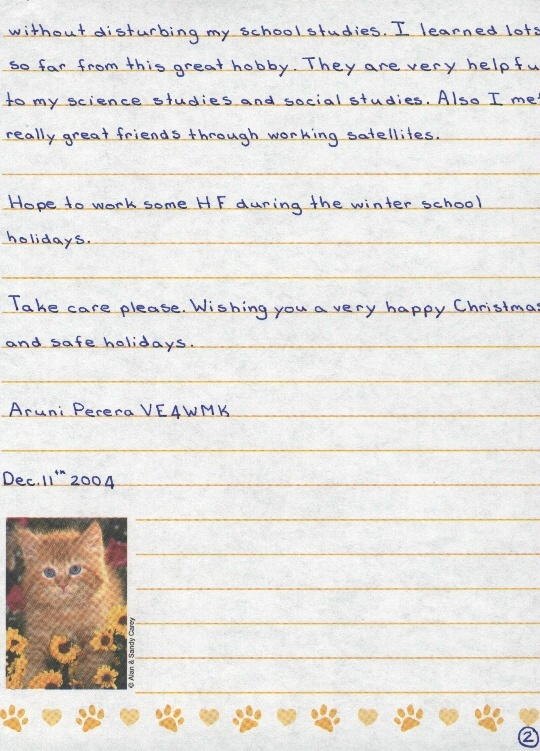 without disturbing my school studies. I learned lots
so far from this great hobby. They are very helpfu
to my science studies and social studies. Also I met
really great friends through working satellites.
Hope to work some HF during the winter school
holidays.
Take care please. Wishing you a very happy Christmas
and safe holidays.
Aruni Perera VE4WMK
Dec. 11th 2004
© Alan & Sandy Carey
2